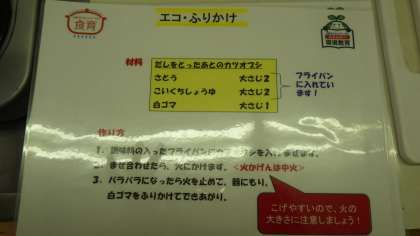 食育
エコ・ふりかけ
環境教育
材料
だしをとったあとのカツオブシ
さとう 大さじ2
こいくちしょうゆ 大さじ2
白ゴマ 大さじ1
フライパン
に入れてい
ます!
作り方
1. 調味料の入ったフライパンに
2. まぜ合わせたら、火にかけます。<火かげんは中火>
3. パラパラになったら火を止めて、器にもり、
白ゴマをふりかけてできあがり。
こげやすいので、火の
大きさに注意しましょう!